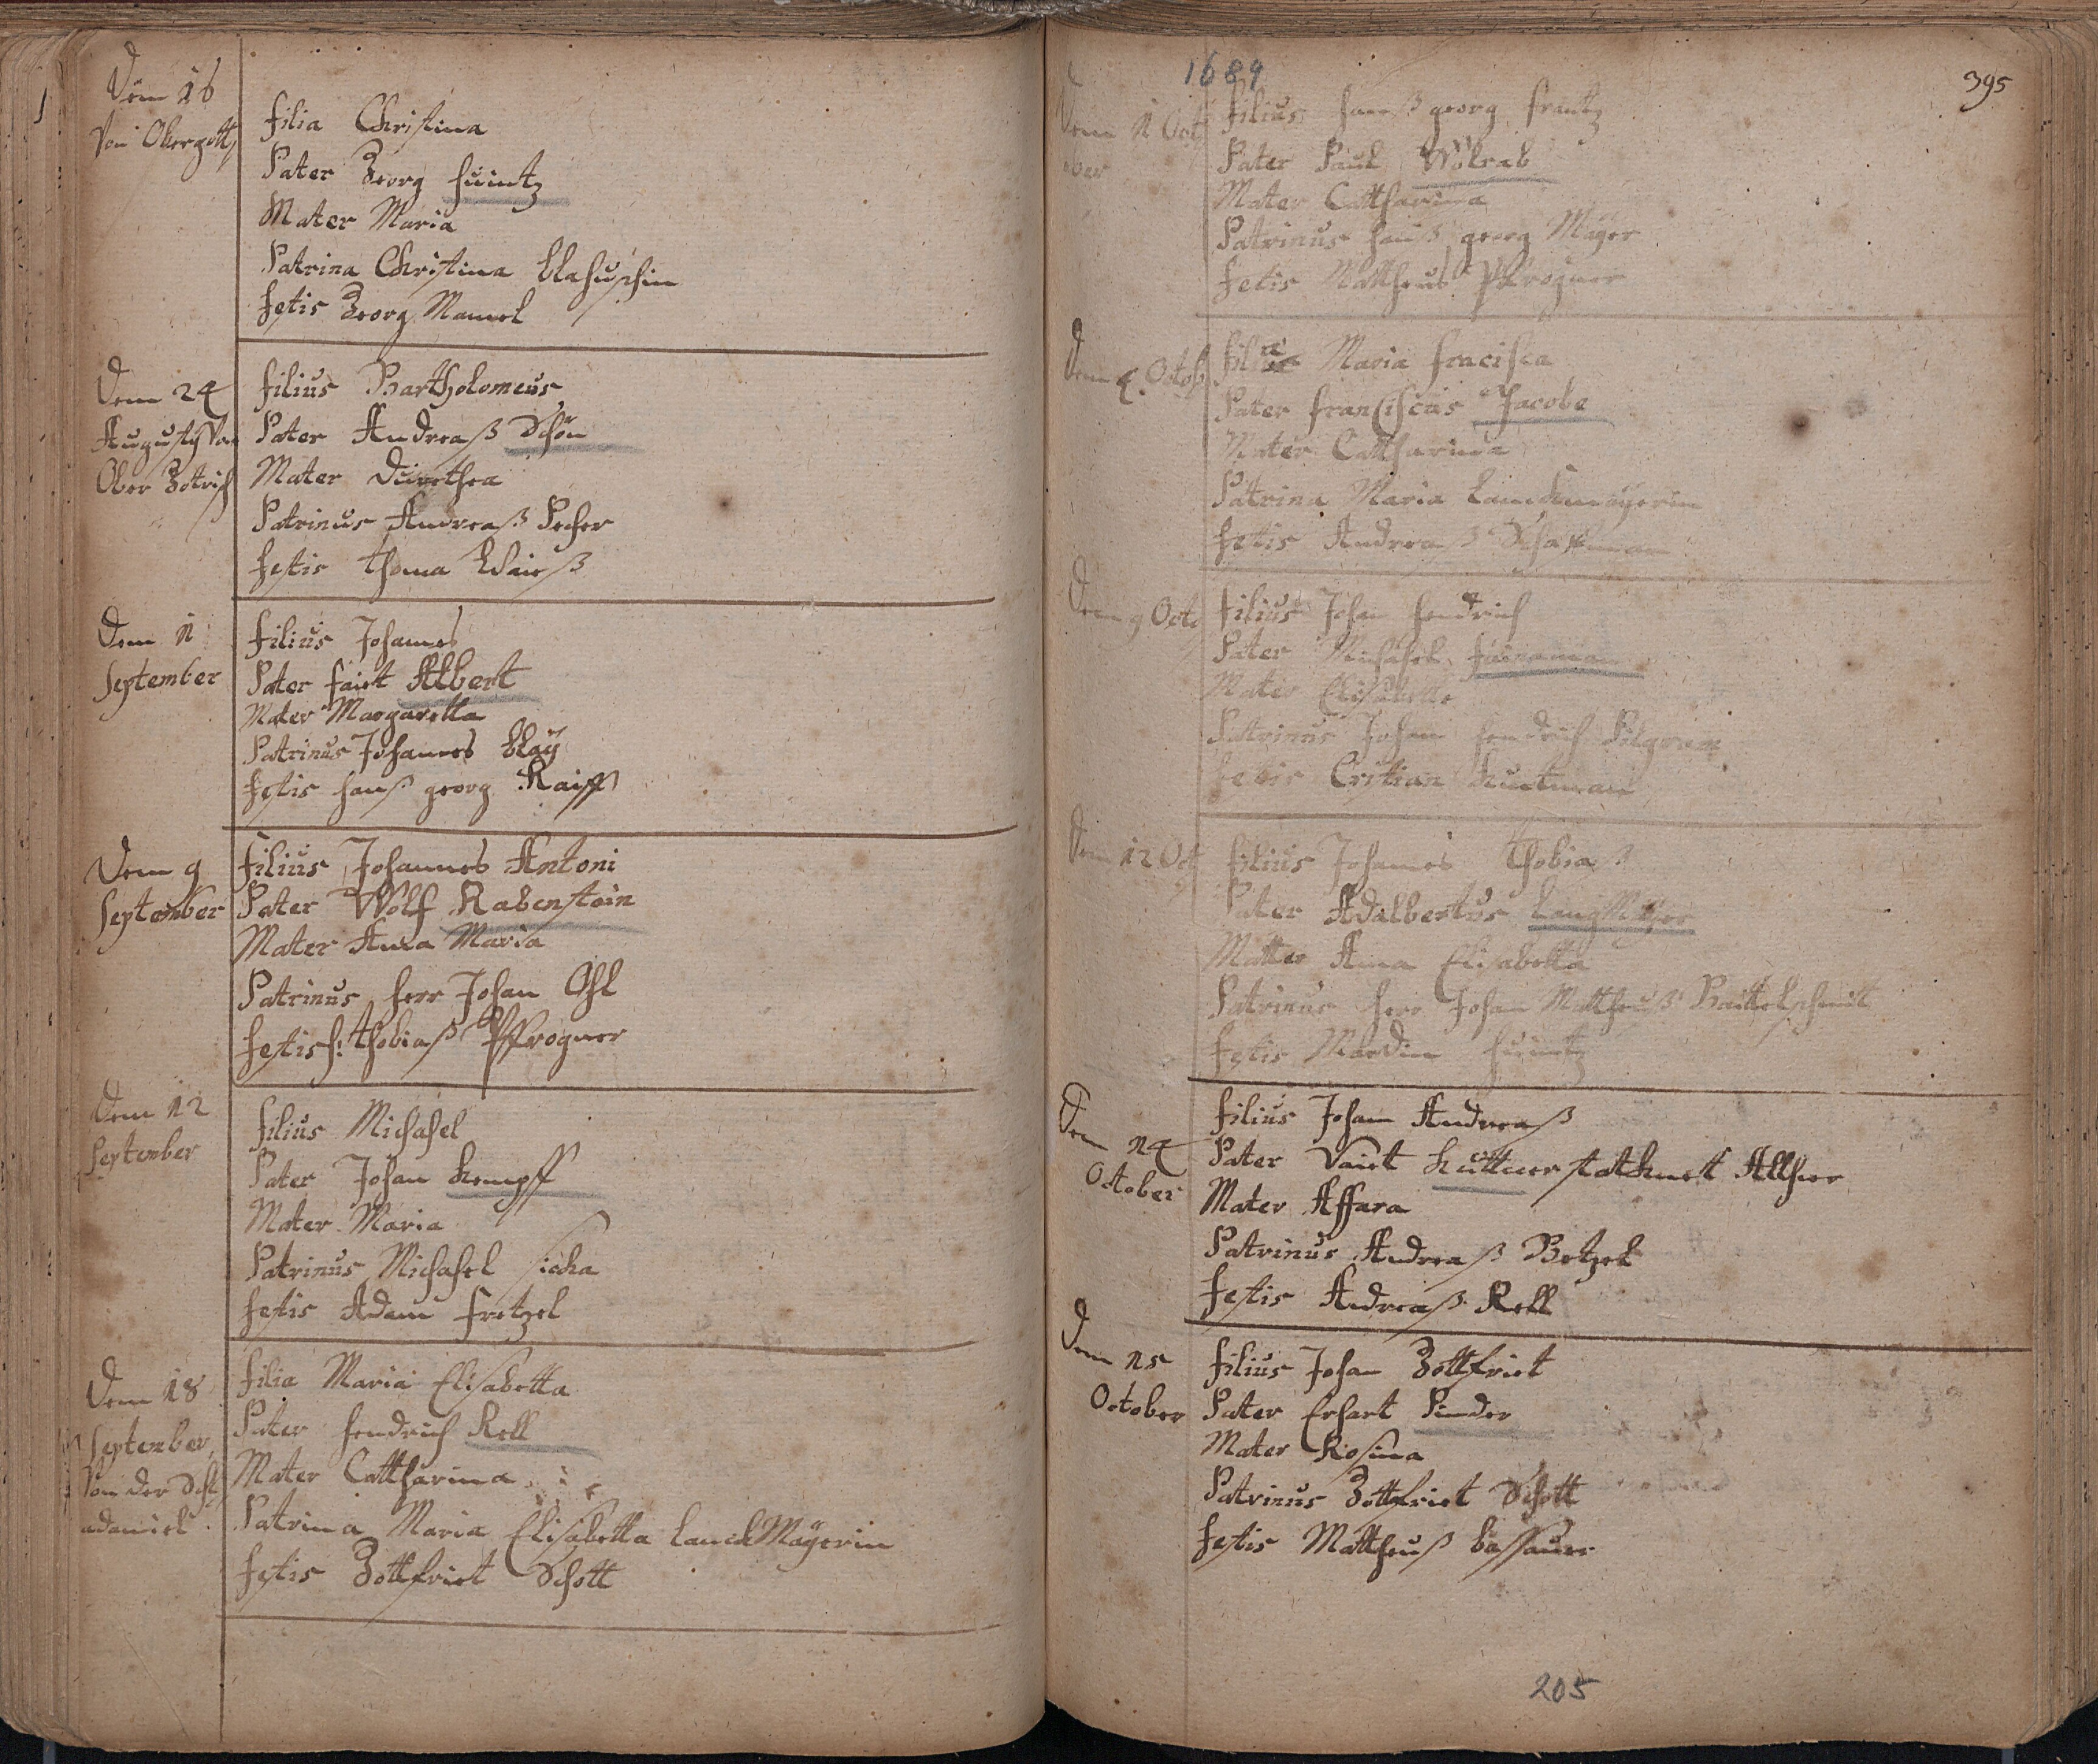 Dem 16
Von Obergott
filia Christina
Pater Georg
Mater Maria
Patrina Christina
testis Georg Mamel
Dem 24
Augusty Von
Ober
filius Bartholomeus
Pater Andreaß Schön
Mater Durethea
Patrinus Andreaß Pecher
testis thoma
Dem 11
September
filius Johannes
Pater fait Albert
Mater Margaretta
Patrinus Johannes
testis hanß georg Raiff
Dem 9
September
filius Johannes Antoni
Pater Wolf Rabenstein
Mater Anna Maria
Patrinus herr Johan Ohl
testis h: thobiaß Pfrogner
Dem 12
September
filius Michahel
Pater Johan Kempff
Mater Maria
Patrinus Michahel
testis Adam fretzel
Dem 18
September
Von der Sch
adamiel
filia Maria Elisabetta
Pater hendrich Rell
Mater Cattharina
Patrina Maria Elisabetta LanckMäyerin
testis Gottfriet Schott
1689
395
Dem 11 Oct
ber
filius hanß georg frantz
Pater Paul Wolrab
Mater Cattharina
Patrinus hanß georg Mäyer
testis Mattheus Pfrogner
Dem 4. Octob
filia Maria francisca
Pater franciscus Jacobe
Mater Cattharina
Patrina Maria Lanckmäyerin
testis Andreaß
Dem 9 Octo
filius Johan hendrich
Pater Michahel
Mater Elisabetta
Patrinus Johan hendrich Pilgram
testis Cristian
Dem 12 Oct
filius Johannes thobiaß
Pater Adalbertus LangMayer
Matter Anna Elisabetta
Patrinus herr Johan Mattheuß
testis Mardin
Dem 14
October
filius Johann Andreaß
Pater Vaiet Hüttner
Mater Affara
Patrinus Andreaß Betzel
testis Andreaß Rell
Dem 15
October
filius Johan Gottfriet
Pater Erhart Pinder
Mater Rosina
Patrinus Gottfriet Schott
testis Mattheuß
205